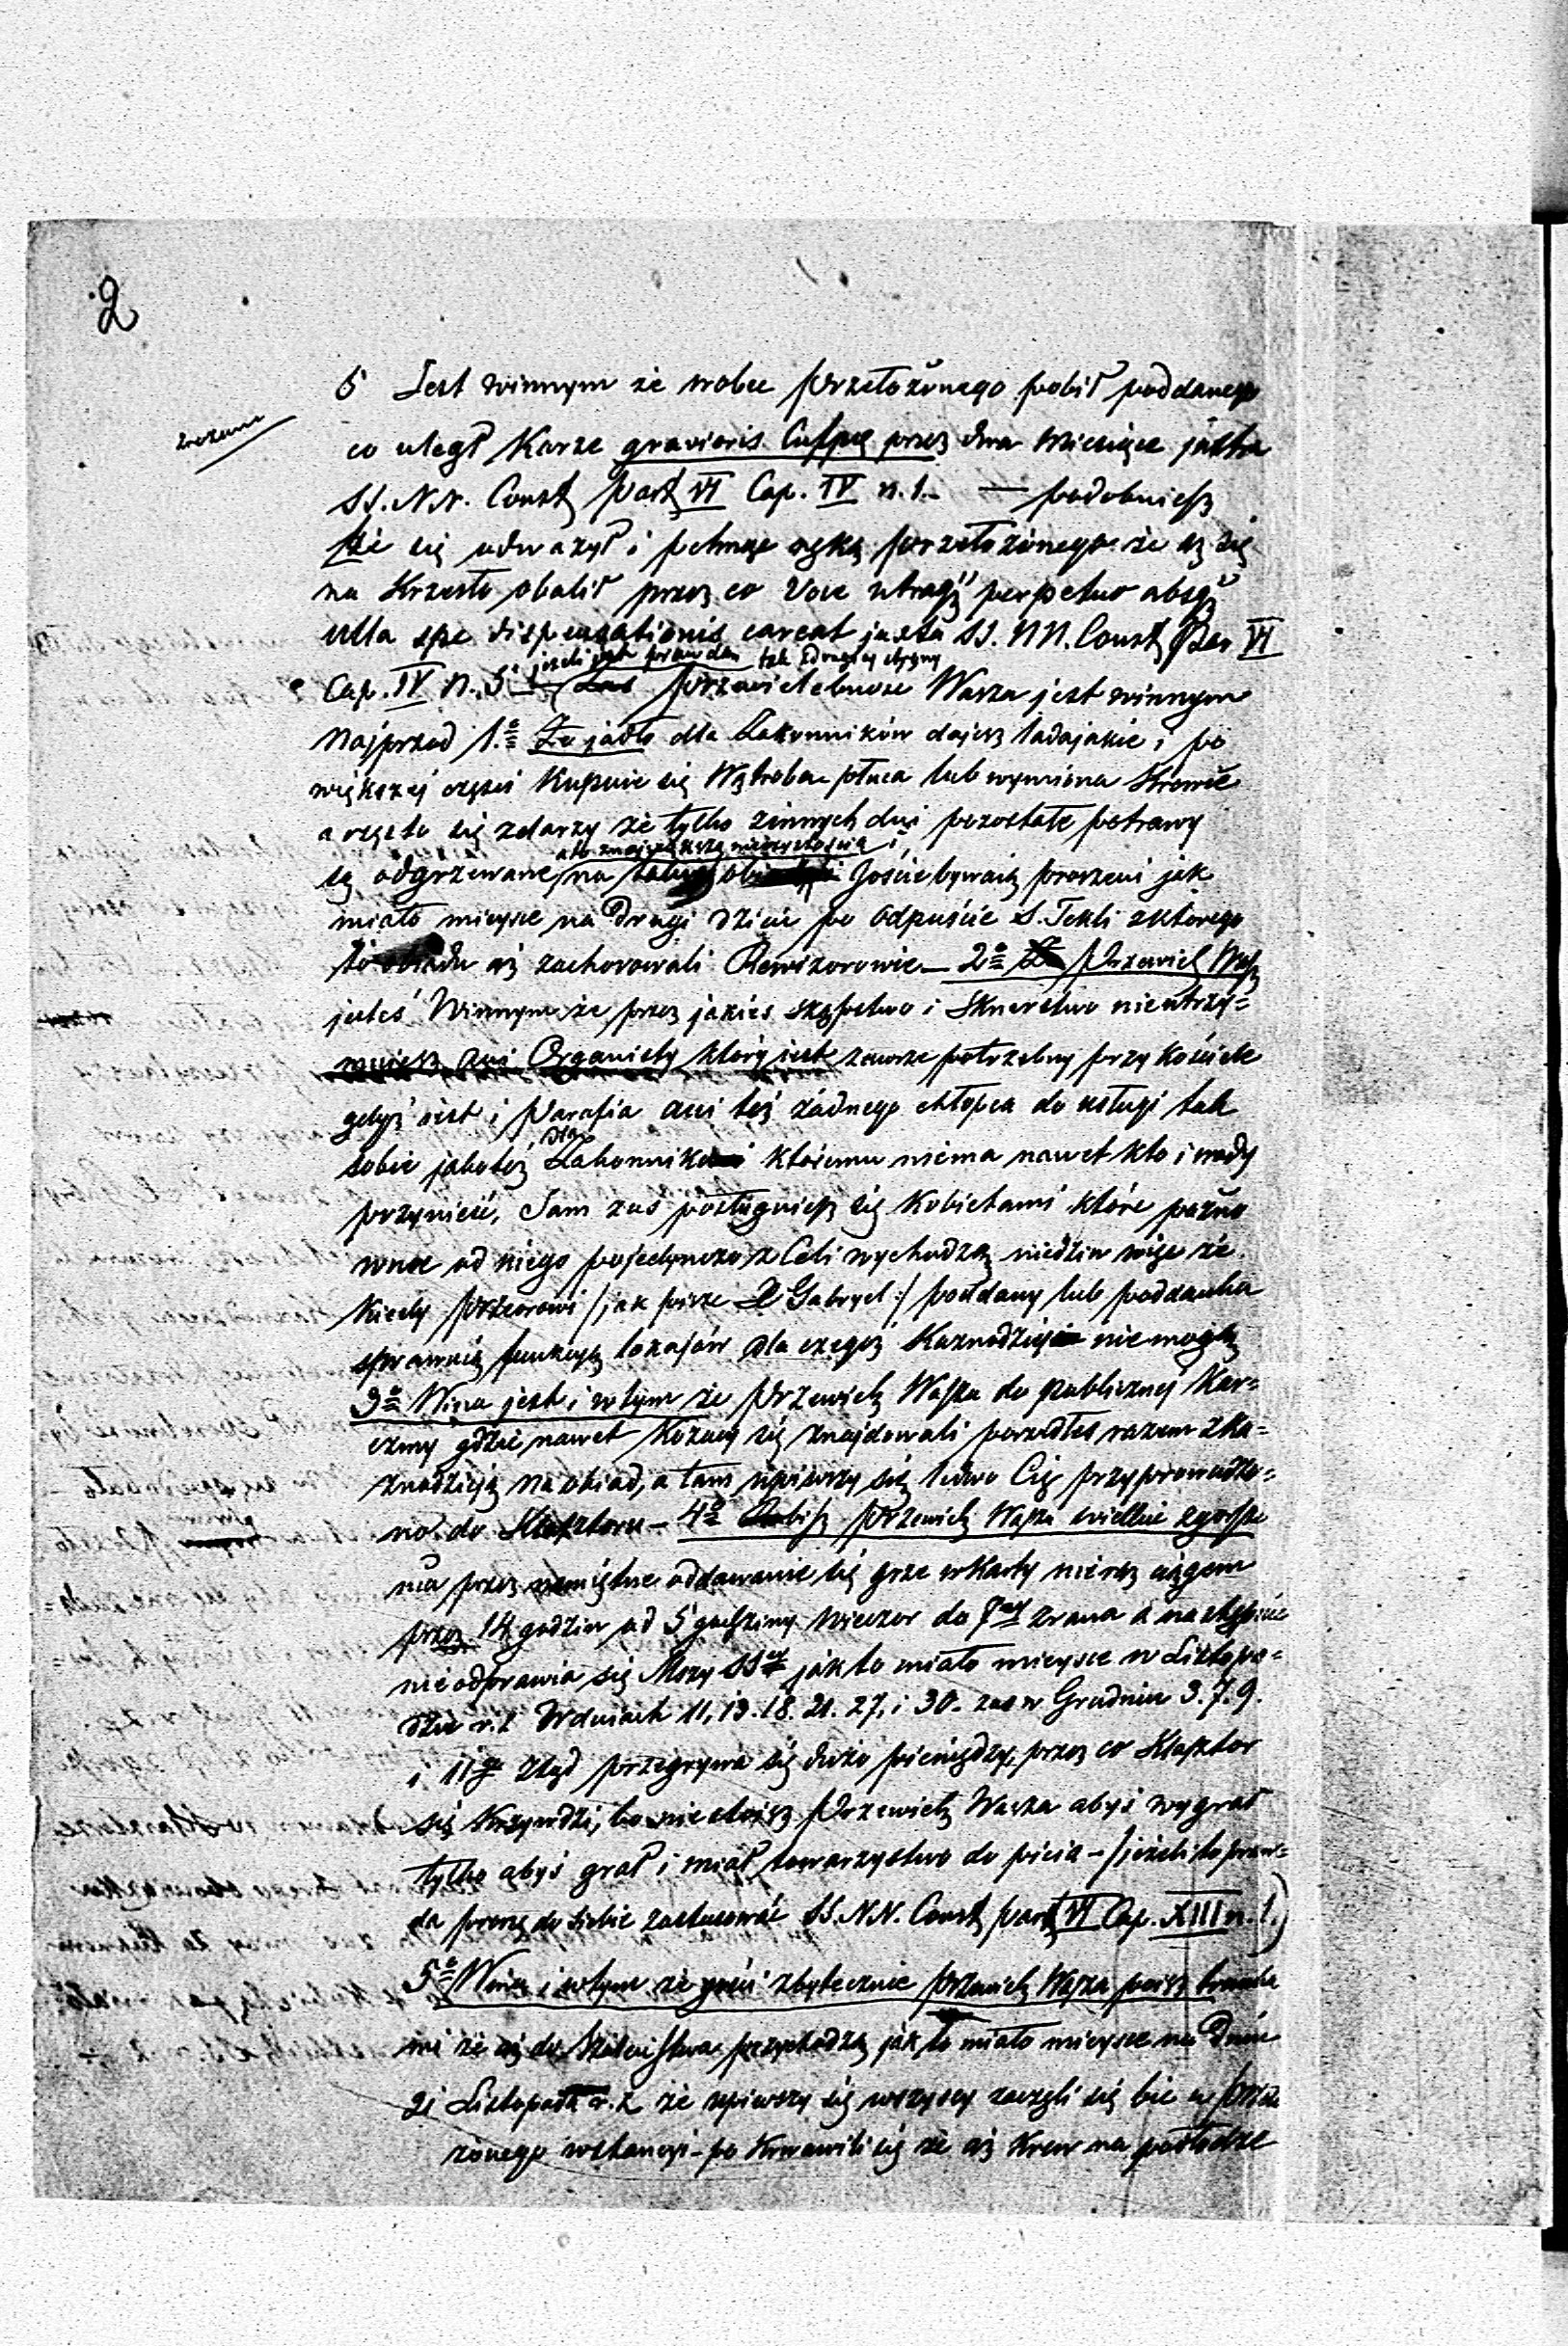 2
5 Jest winnym że wobec Przełożonego pobił poddanego
co uległ Karze gravioris Culpę przez dwa Miesiące juxta
SS. N.N. Const part VI Cap. IV n. 1. — podobnież
że się odważył i pchnąć ręką Przełożonego że aż się
na Krzesło obalił przez co Voce utraq perpetuo absq
ulla spe dispensationis careat juxta SS. NN. Const Par VI
jeżeli jest prawdą tak z drugiej strony
Cap. IV n. 5 Przewielebność Wasza jest winnym
Najprzod 1.o Że jadło dla Zakonników dajesz ladajakie i po
większej części Kupuie się Wątroba płuca lub wymiona Krowie
a często się zdarzy że tylko zinnych dni pozostałe potrawy
a to z największą nieczystością i
są odgrzewane na Goście bywaią proszeni jak
miało mieysce na Drugi Dzień po Odpuście S. Tekli z którego
to obiadu aż zachorowali Rewizorowie — 2o Przewiel Wasz
jesteś Winnym że przez jakieś skępstwo i Sknerstwo nieutrzy=
muiesz ani Organisty który jest zawsze potrzebny przy Kościele
gdyż jest i Parafia ani też żadnego chłopca do usługi tak
dla
sobie jakoteż Zakonnika któremu niema nawet kto i wody
przynieść, Sam zaś posługuiesz się Kobietami które późno
w noc od niego pojedynczo z Celi wychodzą niedziw więc że
Kiedy Przeorowi /jak pisze P Gabryel:/ poddany lub poddanka
sprawuią funkcyę lokajów dla czegoż Kaznodzieje nie mogłby
3o Wina jest i wtym że Przewiel Wasza do publicznej Kar=
czmy gdzie nawet Kozacy się znajdowali poszedłeś razem z Ka=
znodzieją na obiad, a tam upiwszy się ledwo Cię przyprowadzo=
no do Klasztoru — 4o Robisz Przewiel Wasza wielkie zgorsze
nia przez namiętne oddawanie się grze w Karty nieraz ciągiem
przez 14 godzin od 5 godziny Wieczor do 7ey zrana a następnie
nie odprawia się Mszy SSey jak to miało mieysce w Listopa=
dzie r. z. W dniach 11, 13. 18. 21. 27, i 30. zaś w Grudniu 3. 7. 9.
i 11go Ztąd przegrywa się dużo pieniędzy, przez co Klasztor
się Krzywdzi, bo nie stoisz Przewiel Wasza abyś wygrał
tylko abyś grał i miał towarzystwo do picia — /jeżeli to praw=
da proszę do siebie zastosować SS. N.N. Const part VI Cap. XIII n. 1.)
5o Wina i wtym że gości zbytecznie Przewiel Wasza poisz trunka
mi że aż do przychodzą jak to miało mieysce na Dniu
21 Listopada r. z. że upiwszy się wszyscy zaczęli się bić
żonego w stancyi — po Krwawili się że aż Krew na podłodze